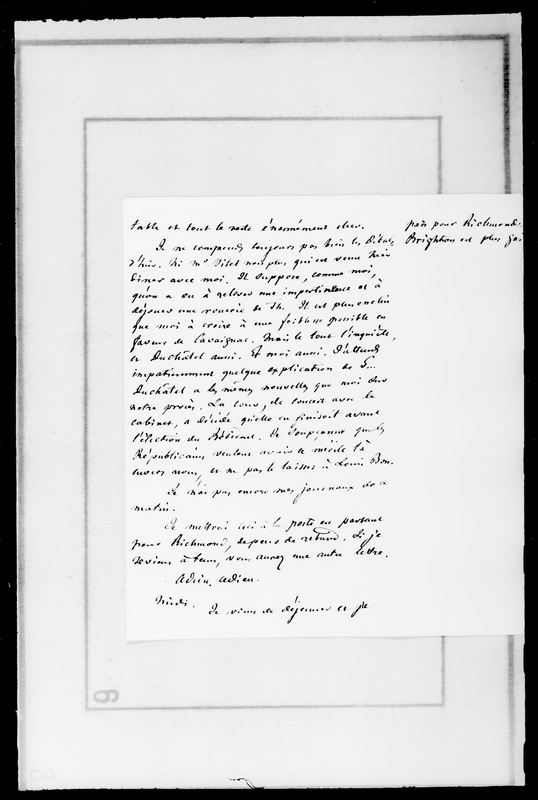 table et tout le reste énormément cher.
Je ne comprends toujours pas bien les Débats
d'hier. Ni Mr Vitet non plus qui est venu hier
diner avec moi. Il suppose, comme moi,
qu'on a eu à relever une impertinence et à
déjouer une rouerie de Th. Il est plus enclin
que moi à croire à une faiblesse possible en
faveur de Cavaignac. Mais le tout l'inquiète,
et Duchâtel aussi. Et moi aussi. J'attends
impatiemment quelque explication de
Duchâtel a les mêmes nouvelles que moi sur
notre procès. La cour, de concert avec le
cabinet, a décidé qu'elle en finiroit avant
l'élection du Président. Je soupçonne que les
Républicains veulent avoir ce mérite là
envers nous, et ne pas le laisser à Louis Bon.
Je n'ai pas encore mes journaux de ce
matin.
Je mettrai ceci à la poste en partant
pour Richmond, de peur de retard. Si je
reviens à tems, vous aurez une autre lettre.
Adieu. Adieu.
Midi. Je viens de déjeuner et je
pars pour Richmond.
Brighton est plus gai